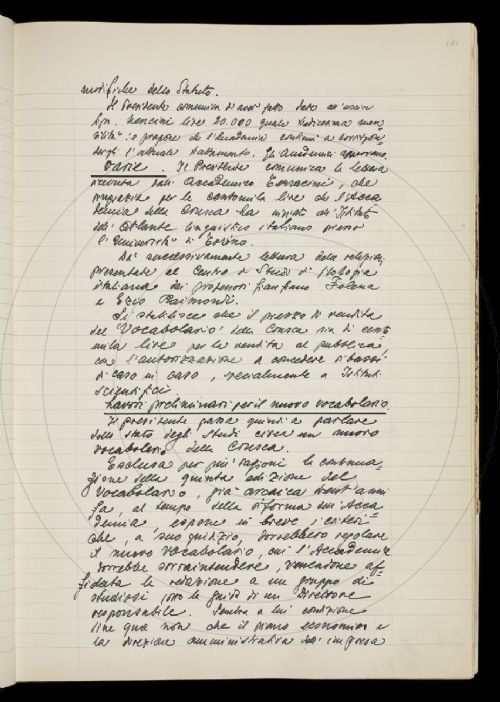 181
modifiche dello Statuto.
Il Presidente comunica di aver fatto dare al usciere
Sgn. Mencini lire 20.000 quale tredicesima men-
silità e propone che l'Accademia continui a corrispon-
dergli l'attuale trattamento. Gli Accademici approvano.
Varie. Il Presidente comunica la lettera
ricevuta dall'Accademico Terracini, che
ringrazia per le centomila lire che l'Acca
demia della Crusca ha inviato all'Istituto
dell'Atlante linguistico italiano presso
l'Università di Torino.
Dà successivamente lettura delle relazioni
presentate al Centro di Studi di filologia
italiana dai professori Gianfranco Folena
e Ezio Raimondi.
Si stabilisce che il prezzo di vendita
del Vocabolario della Crusca sia di cento
mila lire per la vendita al pubblico
con l'autorizzazione a concedere ribassi
di caso in caso, specialmente a Istituti
scientifici.
Lavori preliminari per il nuovo vocabolario.
Il presidente passa quindi a parlare
dello stato degli studi circa un nuovo
vocabolario della Crusca.
Esclusa per più ragioni la continua-
zione della quinta edizione del
Vocabolario, già arcaica trent'anni
fa, al tempo della riforma dell'Acca
demia, espone in breve i criteri
che, a suo giudizio, dovrebbero regolare
il nuovo vocabolario, cui l'Accademia
dovrebbe sovraintendere, venendone af-
fidata la redazione a un gruppo di
studiosi sotto la guida di un Direttore
responsabile. Sembra a lui condizione
sine qua non che il piano economico e
la direzione amministrativa dell'impresa